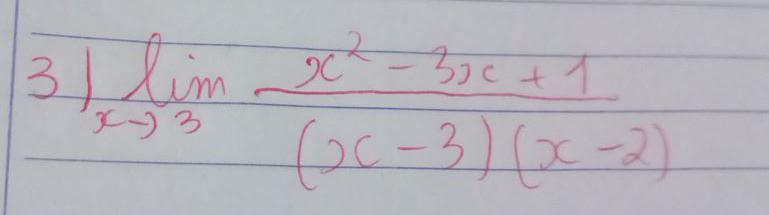 3) lim x→3 (x² - 3x + 1) / ((x - 3)(x - 2))